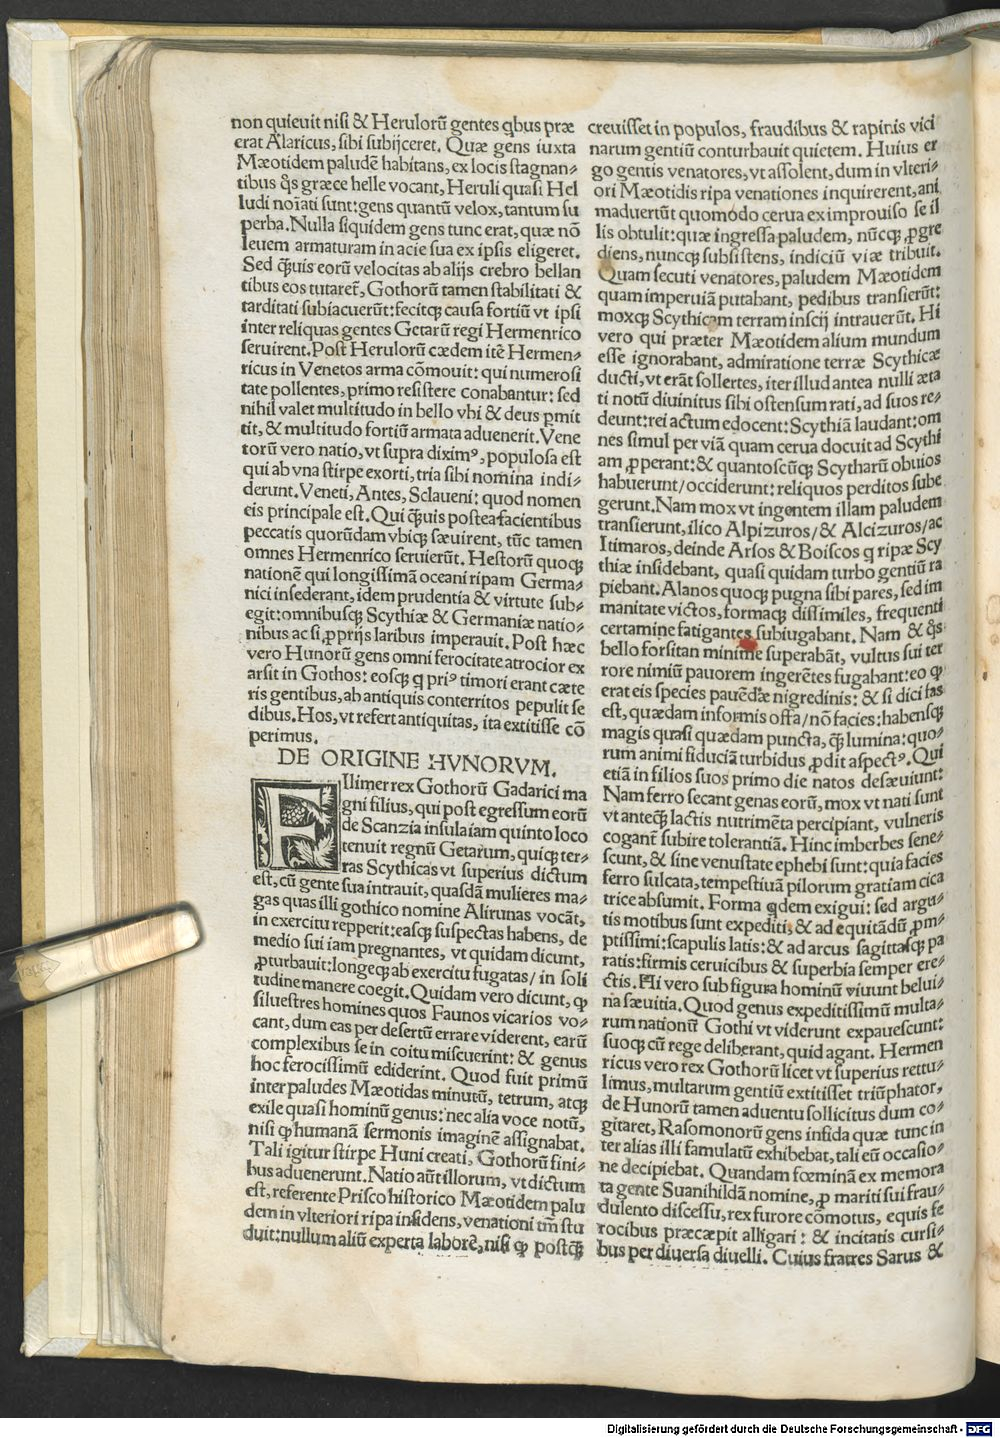 non quieuit nisi & Herulorū gentes qbus præ
erat Alaricus, sibi subijceret. Quæ gens iuxta
Mæotidem paludē habitans, ex locis stagnan⸗
tibus q̄s græce helle vocant, Heruli quasi Hel
ludi noīati sunt: gens quantū velox, tantum su
perba. Nulla siquidem gens tunc erat, quæ nō
leuem armaturam in acie sua ex ipsis eligeret.
Sed q̄uis eorū velocitas ab alijs crebro bellan
tibus eos tutaret̄, Gothorū tamen stabilitati &
tarditati subiacuerūt: fecitqꝫ causa fortiū vt ipsi
inter reliquas gentes Getarū regi Hermenrico
seruirent. Post Herulorū cædem itē Hermen⸗
ricus in Venetos arma cōmouit: qui numerosi
tate pollentes, primo resistere conabantur: sed
nihil valet multitudo in bello vbi & deus ꝑmit
tit, & multitudo fortiū armata aduenerit. Vene
torū vero natio, vt supra diximꝰ, populosa est
qui ab vna stirpe exorti, tria sibi nomina indi⸗
derunt. Veneti, Antes, Sclaueni: quod nomen
eis principale est. Qui q̄uis postea facientibus
peccatis quorūdam vbiqꝫ sæuirent, tūc tamen
omnes Hermenrico seruierūt. Hestorū quoqꝫ
nationē qui longissimā oceani ripam Germa⸗
nici insederant, idem prudentia & virtute sub⸗
egit: omnibusqꝫ Scythiæ & Germaniæ natio⸗
nibus ac si ꝓprijs laribus imperauit. Post hæc
vero Hunorū gens omni ferocitate atrocior ex
arsit in Gothos: eosqꝫ q priꝰ timori erant cæte
ris gentibus, ab antiquis conterritos pepulit se
dibus. Hos, vt refert antiquitas, ita extitisse cō
perimus.
DE ORIGINE HVNORVM.
FIlimer rex Gothorū Gadarici ma
gni filius, qui post egressum eorū
de Scanzia insula iam quinto loco
tenuit regnū Getarum, quiqꝫ ter⸗
ras Scythicas vt superius dictum
est, cū gente sua intrauit, quasdā mulieres ma⸗
gas quas illi gothico nomine Alirunas vocāt,
in exercitu repperit: easqꝫ suspectas habens, de
medio sui iam pregnantes, vt quidam dicunt,
ꝓturbauit: longeqꝫ ab exercitu fugatas/ in soli
tudine manere coegit. Quidam vero dicunt, ꝙ
siluestres homines quos Faunos vicarios vo⸗
cant, dum eas per desertū errare viderent, earū
complexibus se in coitu miscuerint: & genus
hoc ferocissimū ediderint. Quod fuit primū
inter paludes Mæotidas minutū, tetrum, atqꝫ
exile quasi hominū genus: nec alia voce notū,
nisi ꝙ humanā sermonis imaginē assignabat.
Tali igitur stirpe Huni creati, Gothorū fini⸗
bus aduenerunt. Natio aūt illorum, vt dictum
est, referente Prisco historico Mæotidem palu
dem in vlteriori ripa insidens, venationi tm̄ stu
duit: nullum aliū experta laborē, nisi ꝙ postq̄
creuisset in populos, fraudibus & rapinis vici
narum gentiū conturbauit quietem. Huius er
go gentis venatores, vt assolent, dum in vlteri⸗
ori Mæotidis ripa venationes inquirerent, ani
maduertūt quomodo cerua ex improuiso se il
lis obtulit: quæ ingressa paludem, nūcqꝫ ꝓgre
diens, nuncqꝫ subsistens, indiciū viæ tribuit.
Quam secuti venatores, paludem Mæotidem
quam imperuiā putabant, pedibus transierūt:
moxqꝫ Scythicam terram inscij intrauerūt. Hi
vero qui præter Mæotidem alium mundum
esse ignorabant, admiratione terræ Scythicæ
ducti, vt erāt sollertes, iter illud antea nulli æta
ti notū diuinitus sibi ostensum rati, ad suos re⸗
deunt: rei actum edocent: Scythiā laudant: om
nes simul per viā quam cerua docuit ad Scythi
am ꝓperant: & quantoscūqꝫ Scytharū obuios
habuerunt/ occiderunt: reliquos perditos sube
gerunt. Nam mox vt ingentem illam paludem
transierunt, ilico Alpizuros/ & Alcizuros/ ac
Itimaros, deinde Arsos & Boiscos q ripæ Scy
thiæ insidebant, quasi quidam turbo gentiū ra
piebant. Alanos quoqꝫ pugna sibi pares, sed im
manitate victos, formaqꝫ dissimiles, frequenti
certamine fatigantes subiugabant. Nam & q̄s
bello forsitan minime superabāt, vultus sui ter
rore nimiū pauorem ingerētes fugabant: eo ꝙ
erat eis species pauēdæ nigredinis: & si dici fas
est, quædam informis offa/ nō facies: habensqꝫ
magis quasi quædam puncta, q̄ lumina: quo⸗
rum animi fiduciā turbidus ꝓdit aspectꝰ. Qui
etiā in filios suos primo die natos desæuiunt:
Nam ferro secant genas eorū, mox vt nati sunt
vt anteq̄ lactis nutrimēta percipiant, vulneris
cogant̄ subire tolerantiā. Hinc imberbes sene⸗
scunt, & sine venustate ephebi sunt: quia facies
ferro sulcata, tempestiuā pilorum gratiam cica
trice absumit. Forma qdem exigui: sed argu⸗
tis motibus sunt expediti, & ad equitādū ꝓm⸗
ptissimi: scapulis latis: & ad arcus sagittasqꝫ pa
ratis: firmis ceruicibus & superbia semper ere⸗
ctis. Hi vero sub figura hominū viuunt belui⸗
na sæuitia. Quod genus expeditissimū multa⸗
rum nationū Gothi vt viderunt expauescunt:
suoqꝫ cū rege deliberant, quid agant. Hermen
ricus vero rex Gothorū licet vt superius rettu⸗
limus, multarum gentiū extitisset triūphator,
de Hunorū tamen aduentu sollicitus dum co⸗
gitaret, Rasomonorū gens infida quæ tunc in
ter alias illi famulatū exhibebat, tali eū occasio⸗
ne decipiebat. Quandam fœminā ex memora
ta gente Suanihildā nomine, ꝓ mariti sui frau⸗
dulento discessu, rex furore cōmotus, equis fe
rocibus præcæpit alligari: & incitatis cursi⸗
bus per diuersa diuelli. Cuius fratres Sarus &
Digitalisierung gefördert durch die Deutsche Forschungsgemeinschaft - DFG